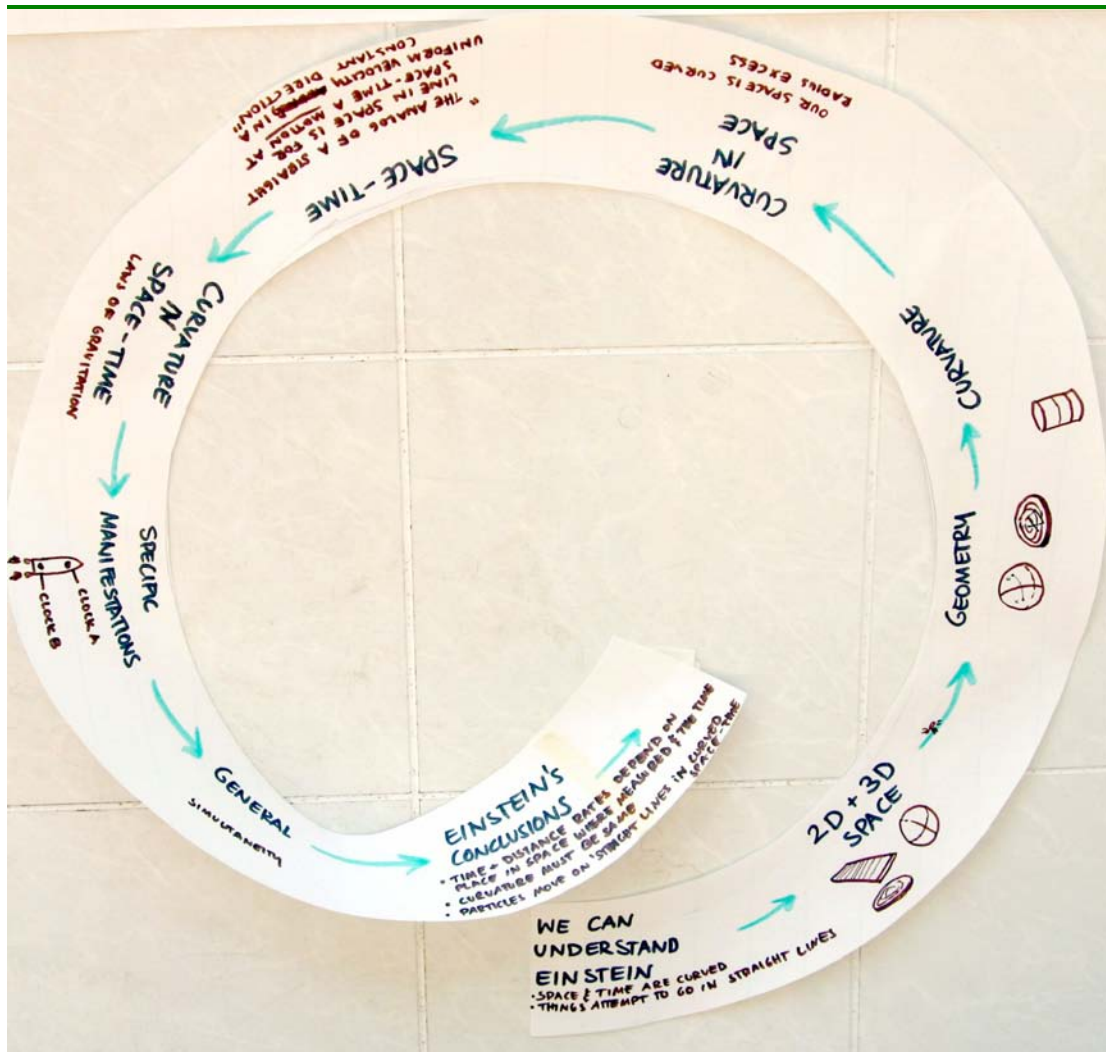 WE CAN
UNDERSTAND
EINSTEIN
· SPACE & TIME ARE CURVED
· THINGS ATTEMPT TO GO IN STRAIGHT LINES
2D + 3D
SPACE
GEOMETRY
CURVATURE
CURVATURE
IN
SPACE
OUR SPACE IS CURVED
RADIUS EXCESS
SPACE-TIME
"THE ANALOG OF A STRAIGHT
LINE IN SPACE IS FOR
SPACE-TIME A MOTION AT
UNIFORM VELOCITY IN A
CONSTANT DIRECTION"
CURVATURE
IN
SPACE-TIME
LAWS OF GRAVITATION
SPECIFIC
MANIFESTATIONS
CLOCK A
CLOCK B
GENERAL
SIMULTANEITY
EINSTEIN'S
CONCLUSIONS
· TIME + DISTANCE RATES DEPEND ON
PLACE IN SPACE WHERE MEASURED & THE TIME
· CURVATURE MUST BE SAME
· PARTICLES MOVE ON 'STRAIGHT LINES IN CURVED
SPACE-TIME